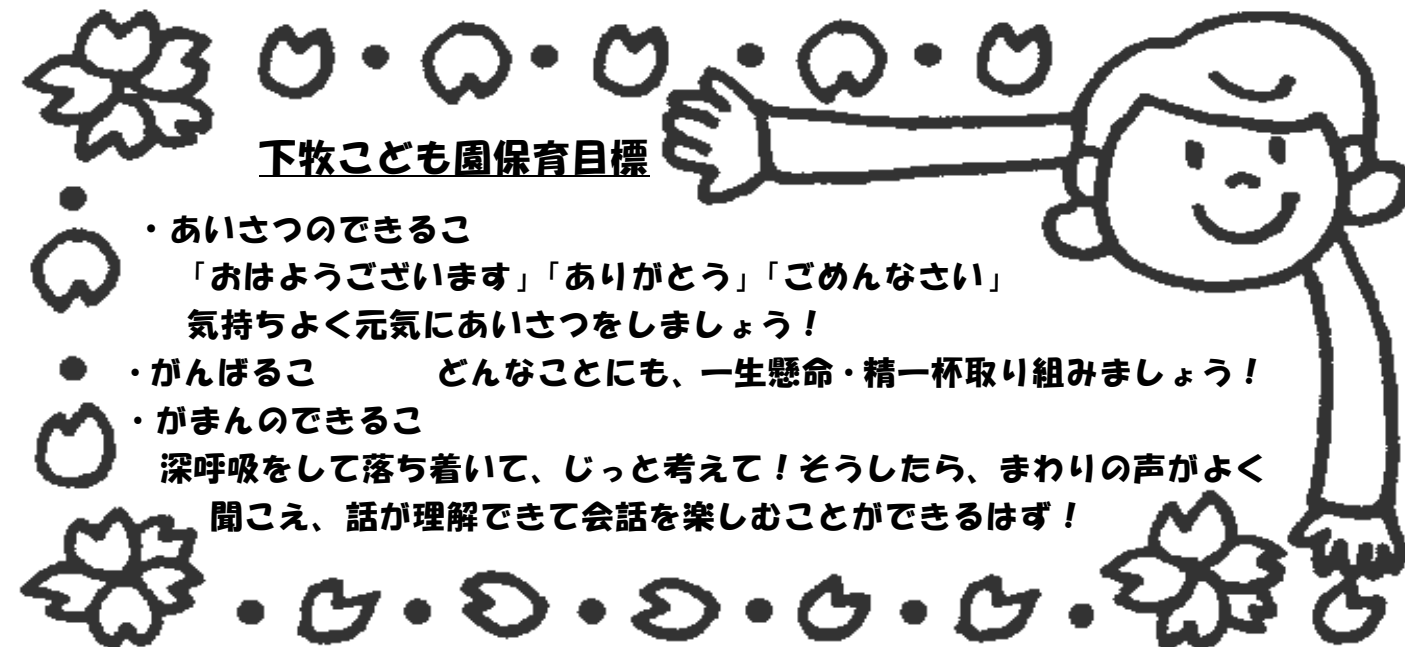 下牧こども園保育目標
・あいさつのできるこ
「おはようございます」「ありがとう」「ごめんなさい」
気持ちよく元気にあいさつをしましょう！
・がんばるこ　　　どんなことにも、一生懸命・精一杯取り組みましょう！
・がまんのできるこ
深呼吸をして落ち着いて、じっと考えて！そうしたら、まわりの声がよく
聞こえ、話が理解できて会話を楽しむことができるはず！